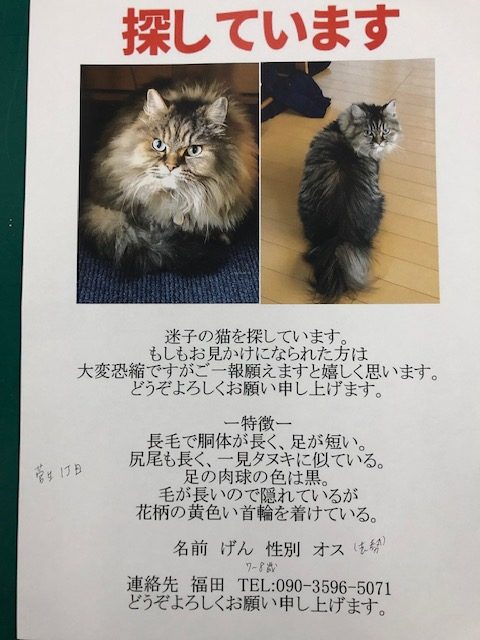 探しています
迷子の猫を探しています。
もしもお見かけになられた方は
大変恐縮ですがご一報願えますと嬉しく思います。
どうぞよろしくお願い申し上げます。
ー特徴ー
長毛で胴体が長く、足が短い。
尻尾も長く、一見タヌキに似ている。
足の肉球の色は黒。
毛が長いので隠れているが
花柄の黄色い首輪を着けている。
菅生1丁目
名前 げん 性別 オス
7-8歳
連絡先 福田 TEL:090-3596-5071
どうぞよろしくお願い申し上げます。